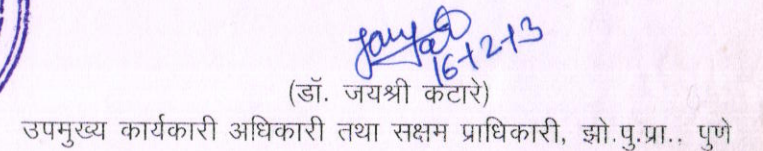 16/12/13
(डॉ. जयश्री कटारे)
उपमुख्य कार्यकारी अधिकारी तथा सक्षम प्राधिकारी, झो.पु.प्रा., पुणे